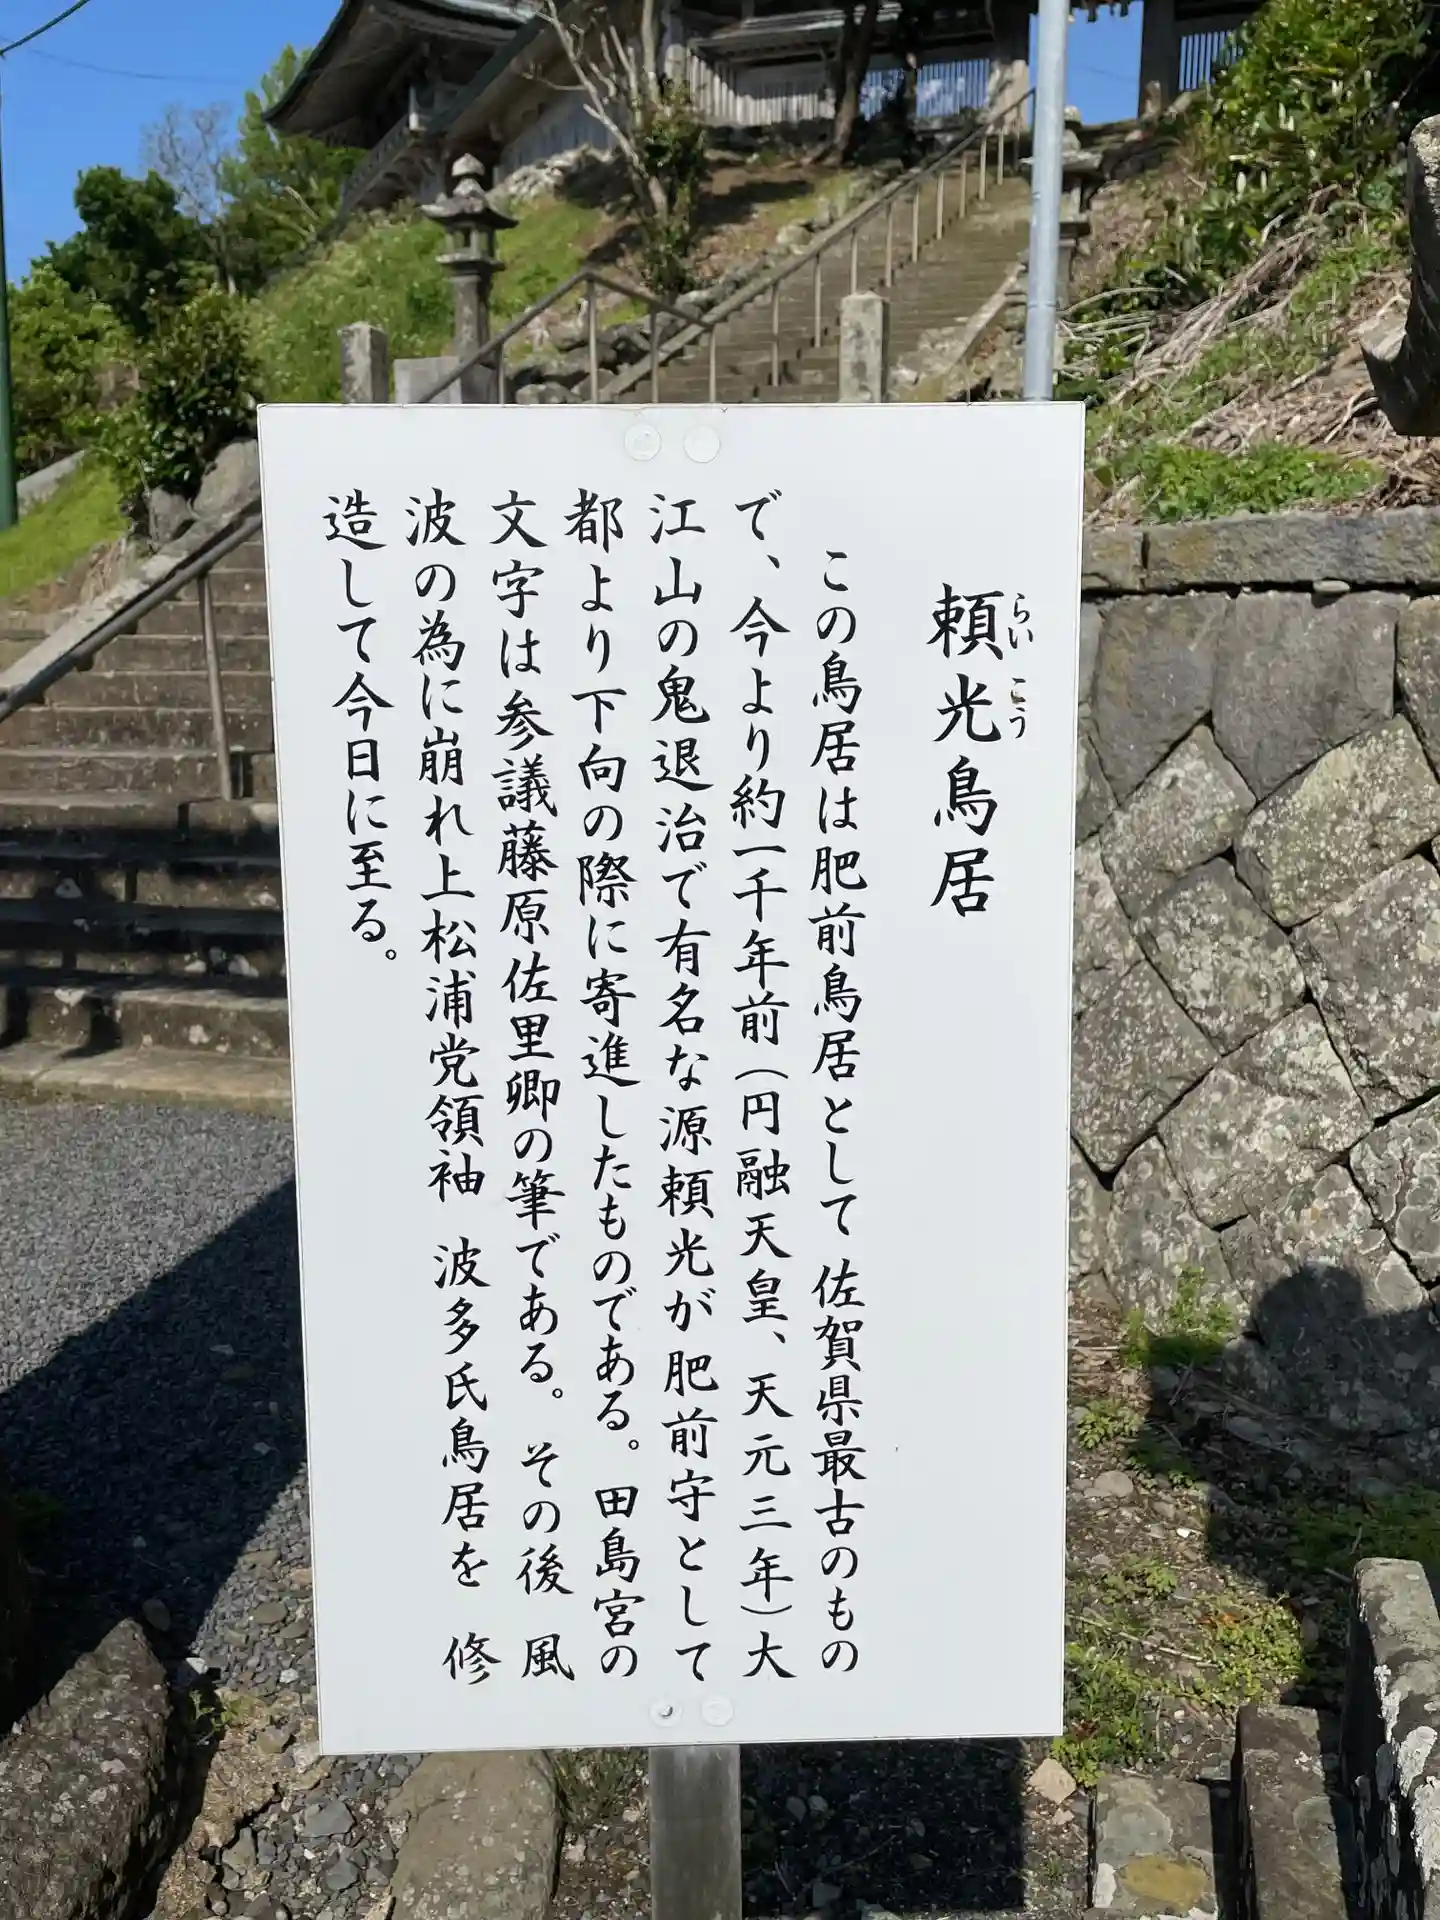 頼光鳥居
らいこう
この鳥居は肥前鳥居として 佐賀県最古のもの
で、今より約一千年前(円融天皇、天元三年)大
江山の鬼退治で有名な源頼光が肥前守として
都より下向の際に寄進したものである。田島宮の
文字は参議藤原佐里卿の筆である。その後 風
波の為に崩れ上松浦党領袖 波多氏鳥居を 修
造して今日に至る。